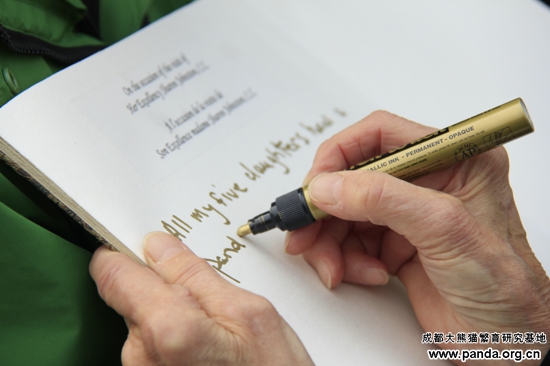 On the occasion of the visit of
Her Excellency Sharon Johnston, C.C.
À l'occasion de la visite de
Son Excellence madame Sharon Johnston, C.C.
All my five daughters have a
pand
METALLIC INK - PERMANENT - OPAQUE
成都大熊猫繁育研究基地
www.panda.org.cn